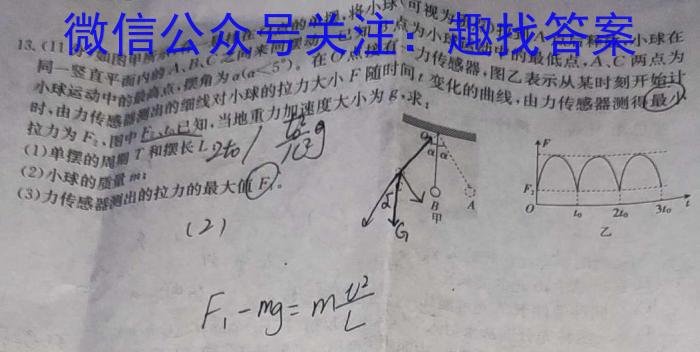 微信公众号关注：趣找答案
13.(11分)如图甲所示
将小球(可视为
小球在
同一竖直平面内的A、B、C之间来回摆动
点为小球运动中的最低点,A、C两点为
小球运动中的最高点,摆角为α(α<5°)。在O点接有一力传感器,图乙表示从某时刻开始计
时,由力传感器测出的细线对小球的拉力大小F随时间t变化的曲线,由力传感器测得最小
拉力为F₂,图中F₂、t₀已知,当地重力加速度大小为g,求:
(1)单摆的周期T和摆长L;
2t₀
(2)小球的质量m;
(3)力传感器测出的拉力的最大值F₁。
(2)
F₁-mg=m v²/L
α α
B
A
甲
G
α
F
F₂
O
t₀
2t₀
3t₀
t
乙